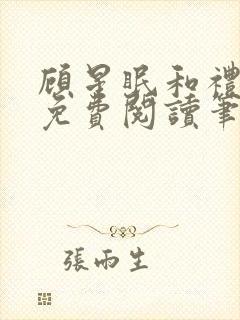 顾星眠和禮
免費閱讀筆
張雨生